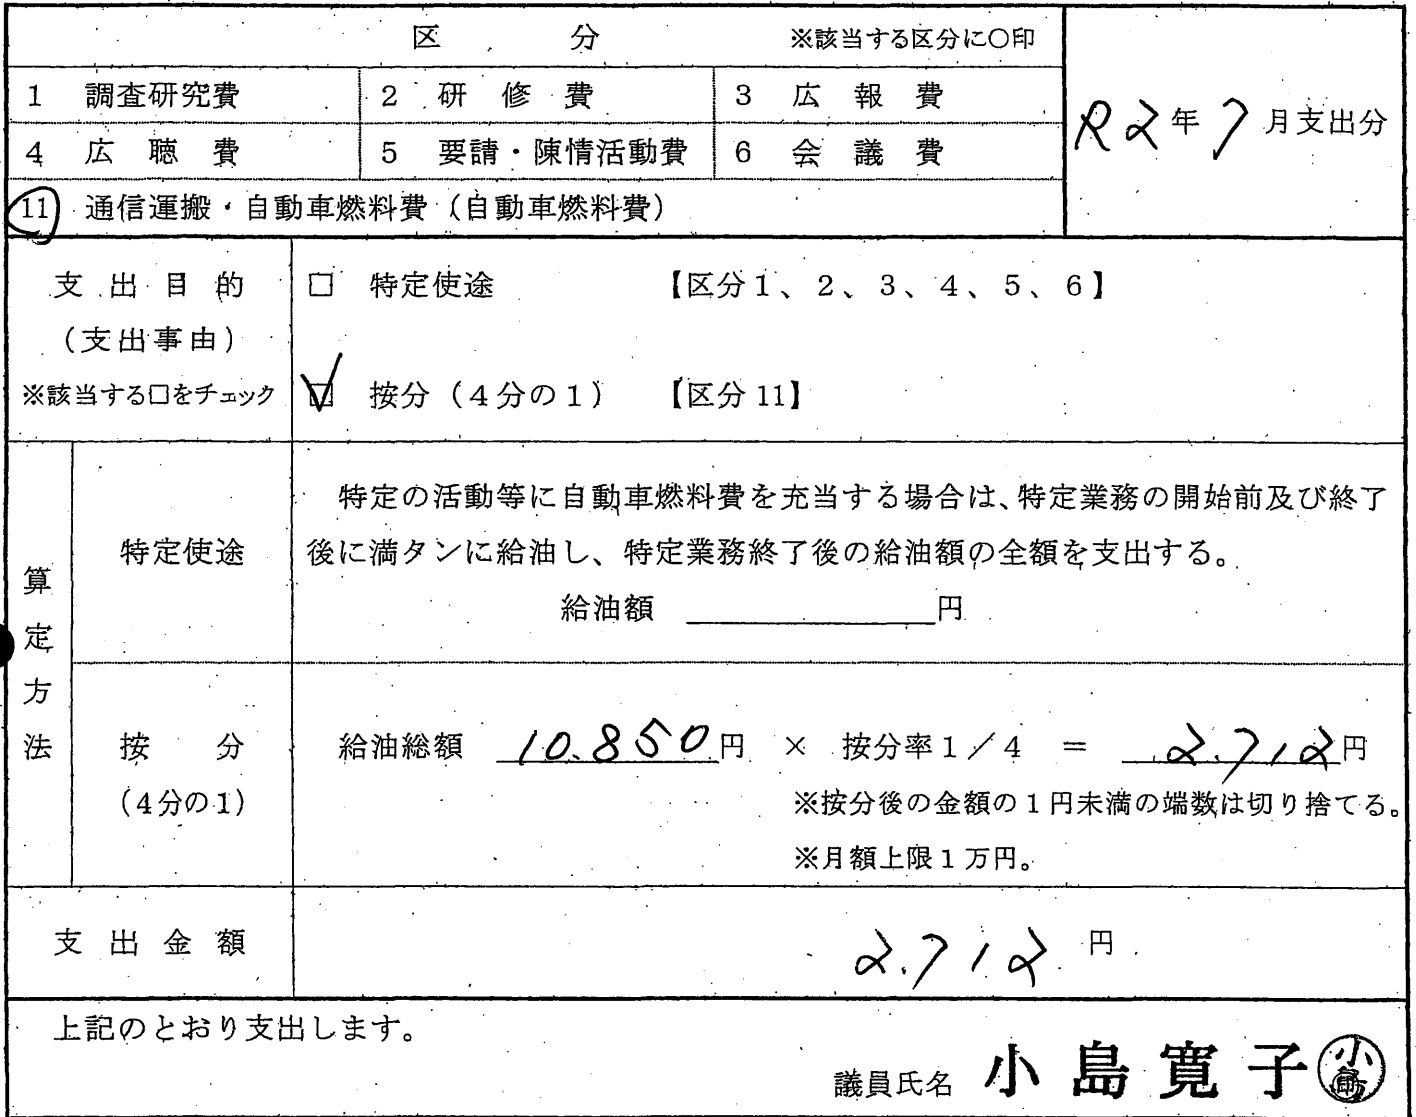 区 分 ※該当する区分に〇印
1 調査研究費 2 研修費 3 広報費
R2年7月支出分
4 広聴費 5 要請・陳情活動費 6 会議費
11 通信運搬・自動車燃料費（自動車燃料費）
支出目的
（支出事由）
※該当する□をチェック
□ 特定使途 【区分1、2、3、4、5、6】
☑ 按分（4分の1） 【区分11】
算定方法
特定使途
特定の活動等に自動車燃料費を充当する場合は、特定業務の開始前及び終了
後に満タンに給油し、特定業務終了後の給油額の全額を支出する。
給油額 円
按分
（4分の1）
給油総額 10.850円 × 按分率1／4 ＝ 2.712円
※按分後の金額の1円未満の端数は切り捨てる。
※月額上限1万円。
支出金額 2.712 円
上記のとおり支出します。
議員氏名 小島寛子 小島